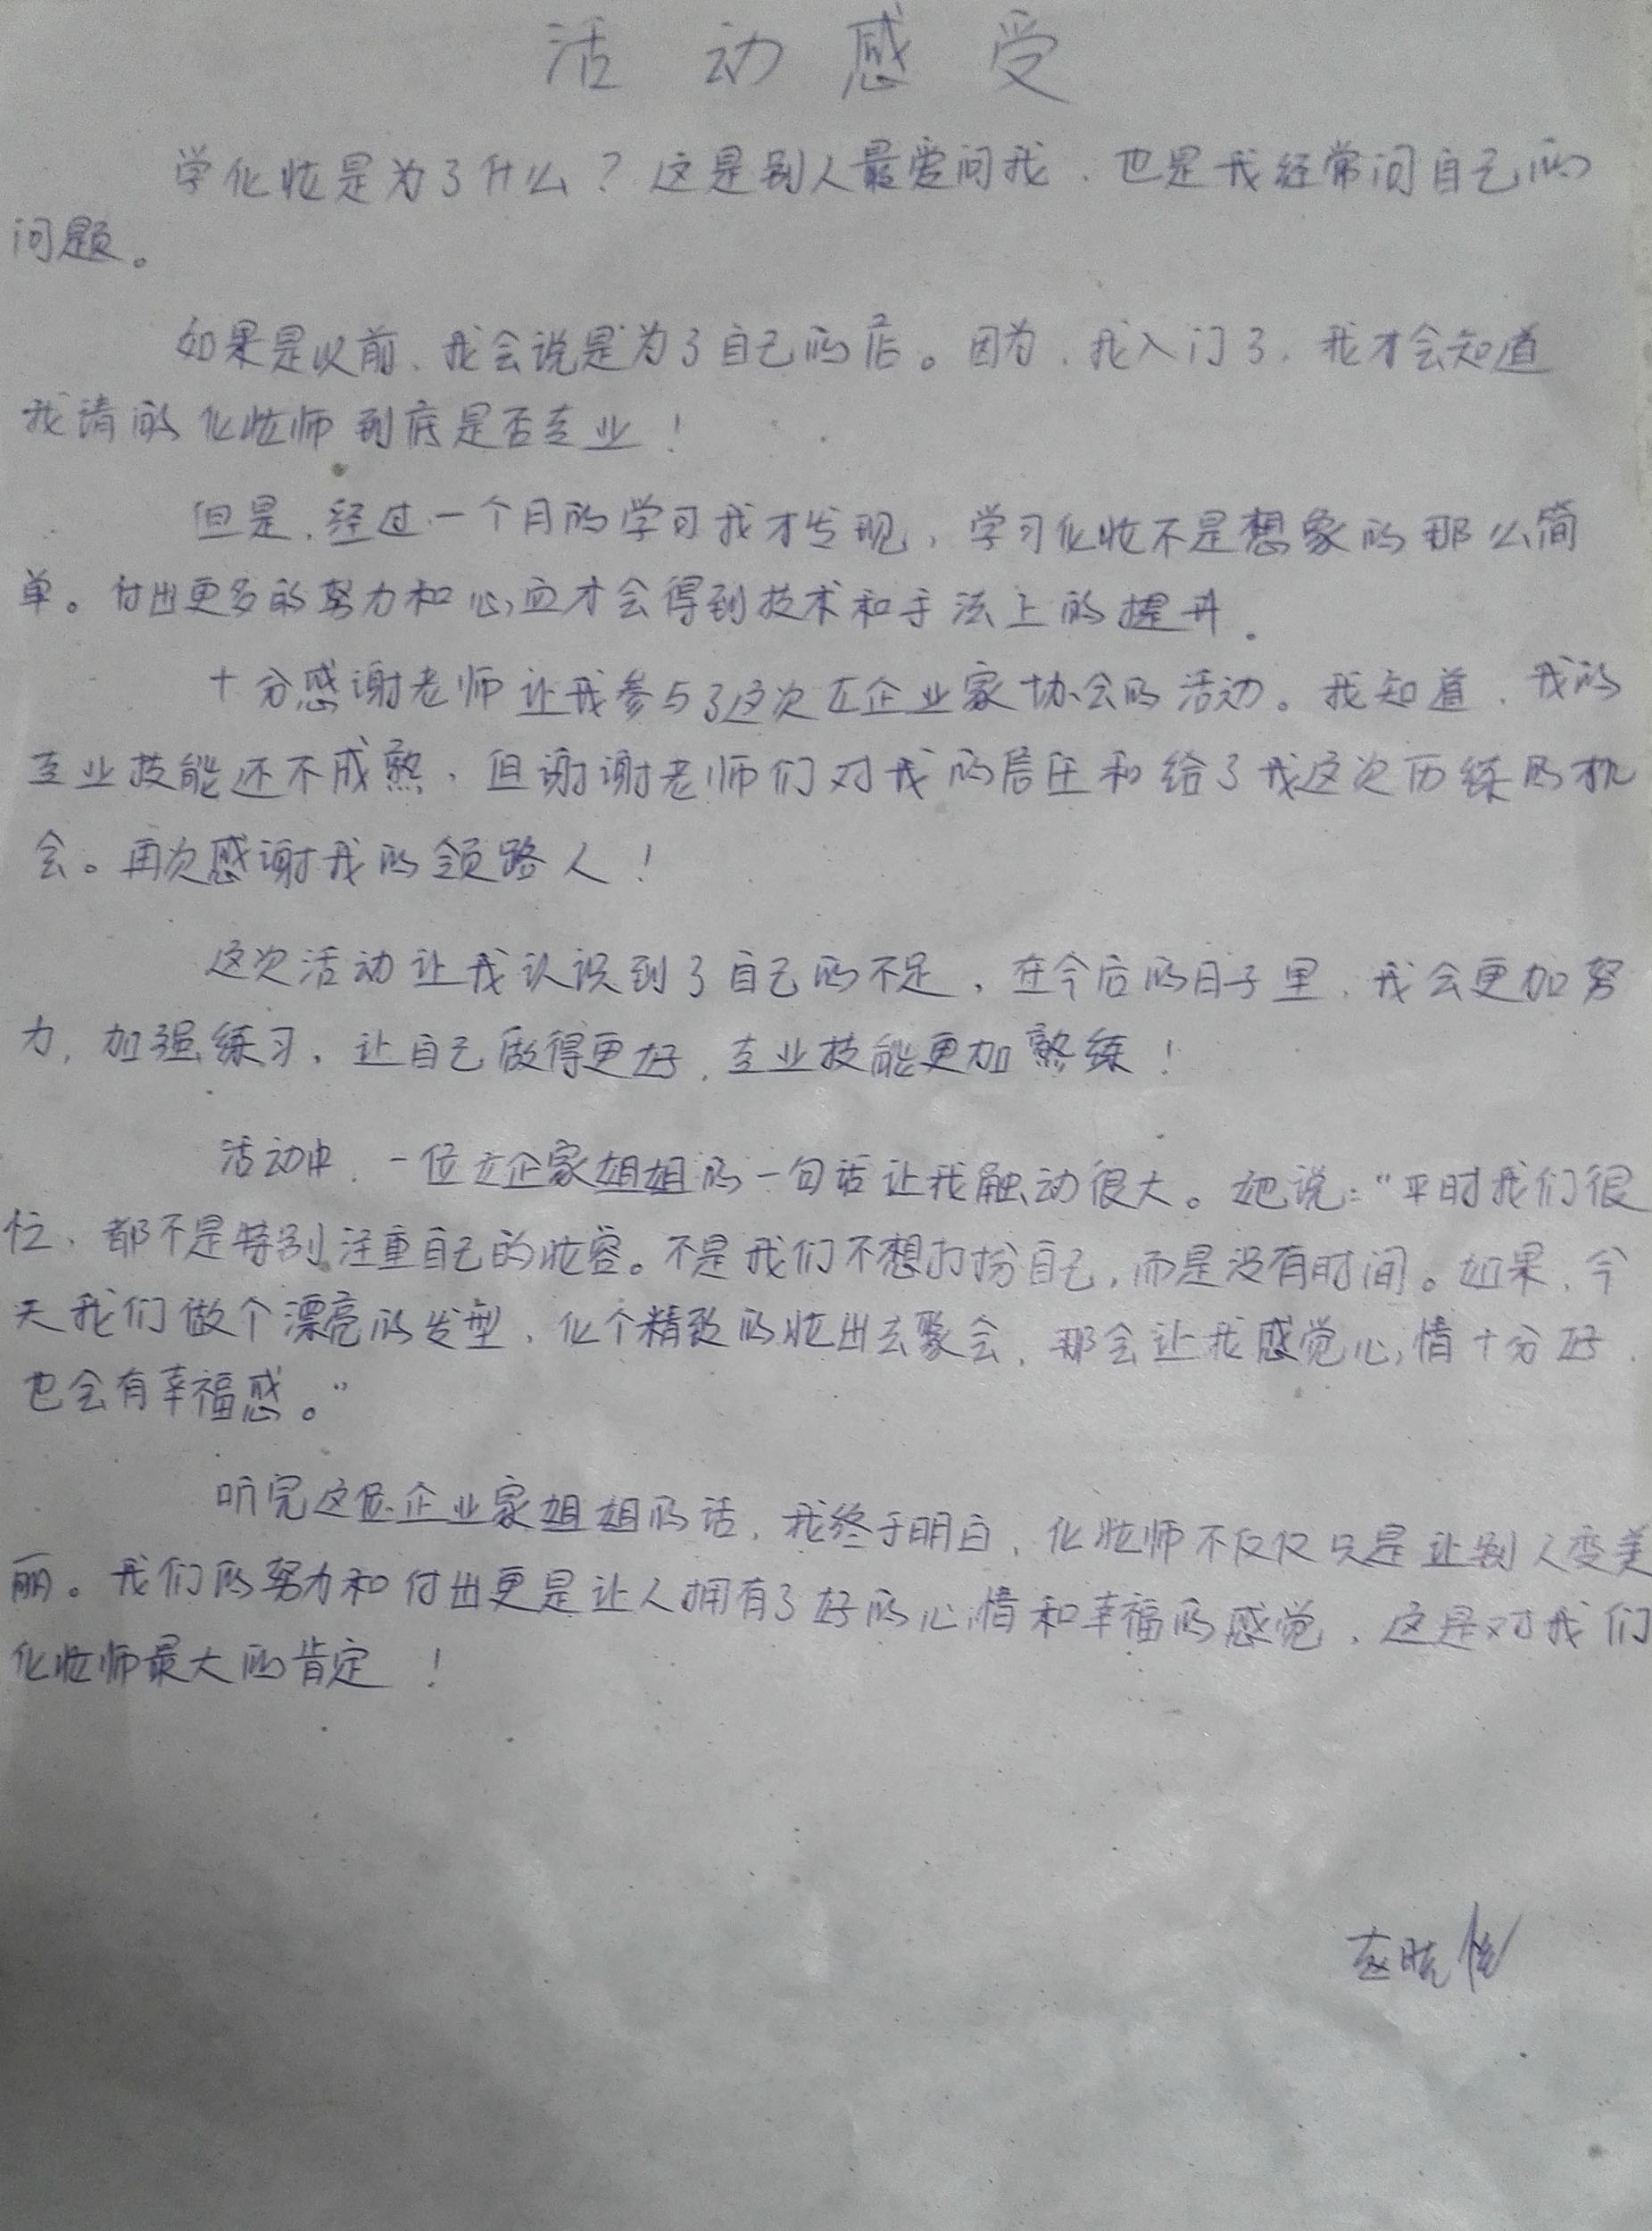 活动感受
学化妆是为了什么？这是别人最爱问我，也是我经常问自己的
问题。
如果是以前，我会说是为了自己的店。因为，我入门了，我才会知道
我请的化妆师到底是否专业！
但是，经过一个月的学习我才发现，学习化妆不是想象的那么简
单。付出更多的努力和心血才会得到技术和手法上的提升。
十分感谢老师让我参与了这次在企业家协会的活动。我知道，我的
专业技能还不成熟，但谢谢老师们对我的信任和给了我这次历练的机
会。再次感谢我的领路人！
这次活动让我认识到了自己的不足，在今后的日子里，我会更加努
力，加强练习，让自己做得更好，专业技能更加熟练！
活动中，一位女企家姐姐的一句话让我触动很大。她说：“平时我们很
忙，都不是特别注重自己的妆容。不是我们不想打扮自己，而是没有时间。如果，今
天我们做个漂亮的发型，化个精致的妆出去聚会，那会让我感觉心情十分好，
也会有幸福感。”
听完这位企业家姐姐的话，我终于明白，化妆师不仅仅只是让别人变美
丽。我们的努力和付出更是让人拥有了好的心情和幸福的感觉，这是对我们
化妆师最大的肯定！